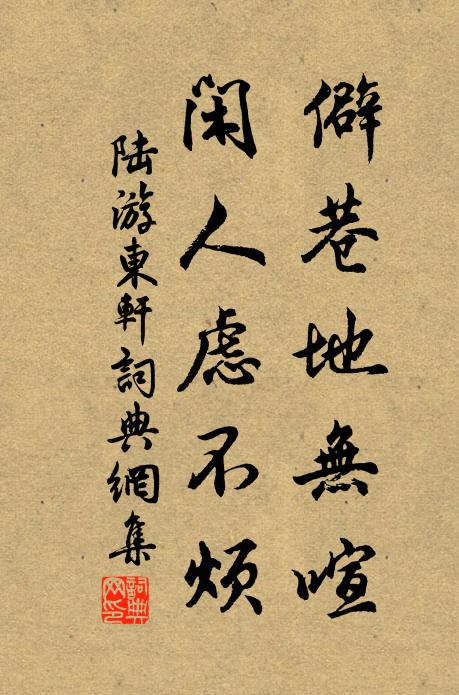 僻巷地無喧
閑人慮不煩
陸游東軒詞典網集
詞典
网印